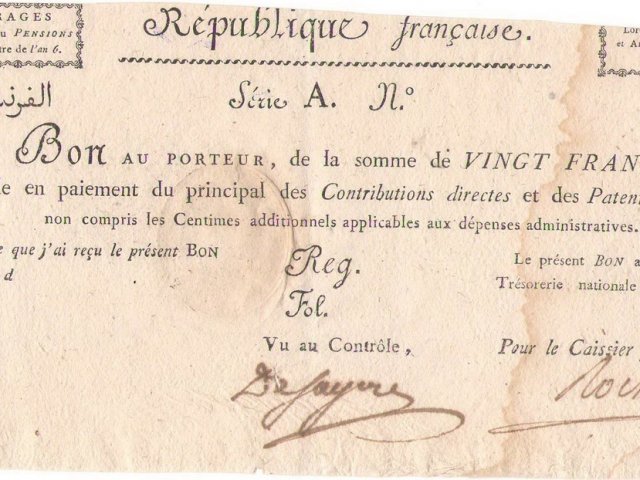 RAGES
République française.
u PENSIONS
tre de l'an 6.
Série A. N.º
BON AU PORTEUR, de la somme de VINGT FRAN
e en paiement du principal des Contributions directes et des Paten
non compris les Centimes additionnels applicables aux dépenses administratives.
e que j'ai reçu le présent BON
Reg.
Le présent BON a
d
Trésorerie nationale
Fol.
Vu au Contrôle,
Pour le Caissier